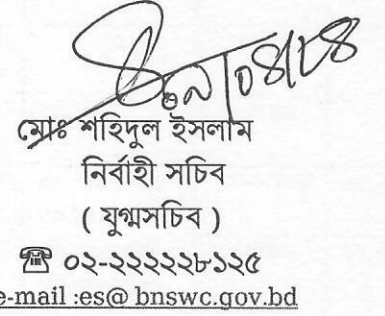 মোঃ শহিদুল ইসলাম
নির্বাহী সচিব
( যুগ্মসচিব )
☎ ০২-২২২২২৮১২৫
e-mail :es@ bnswc.gov.bd